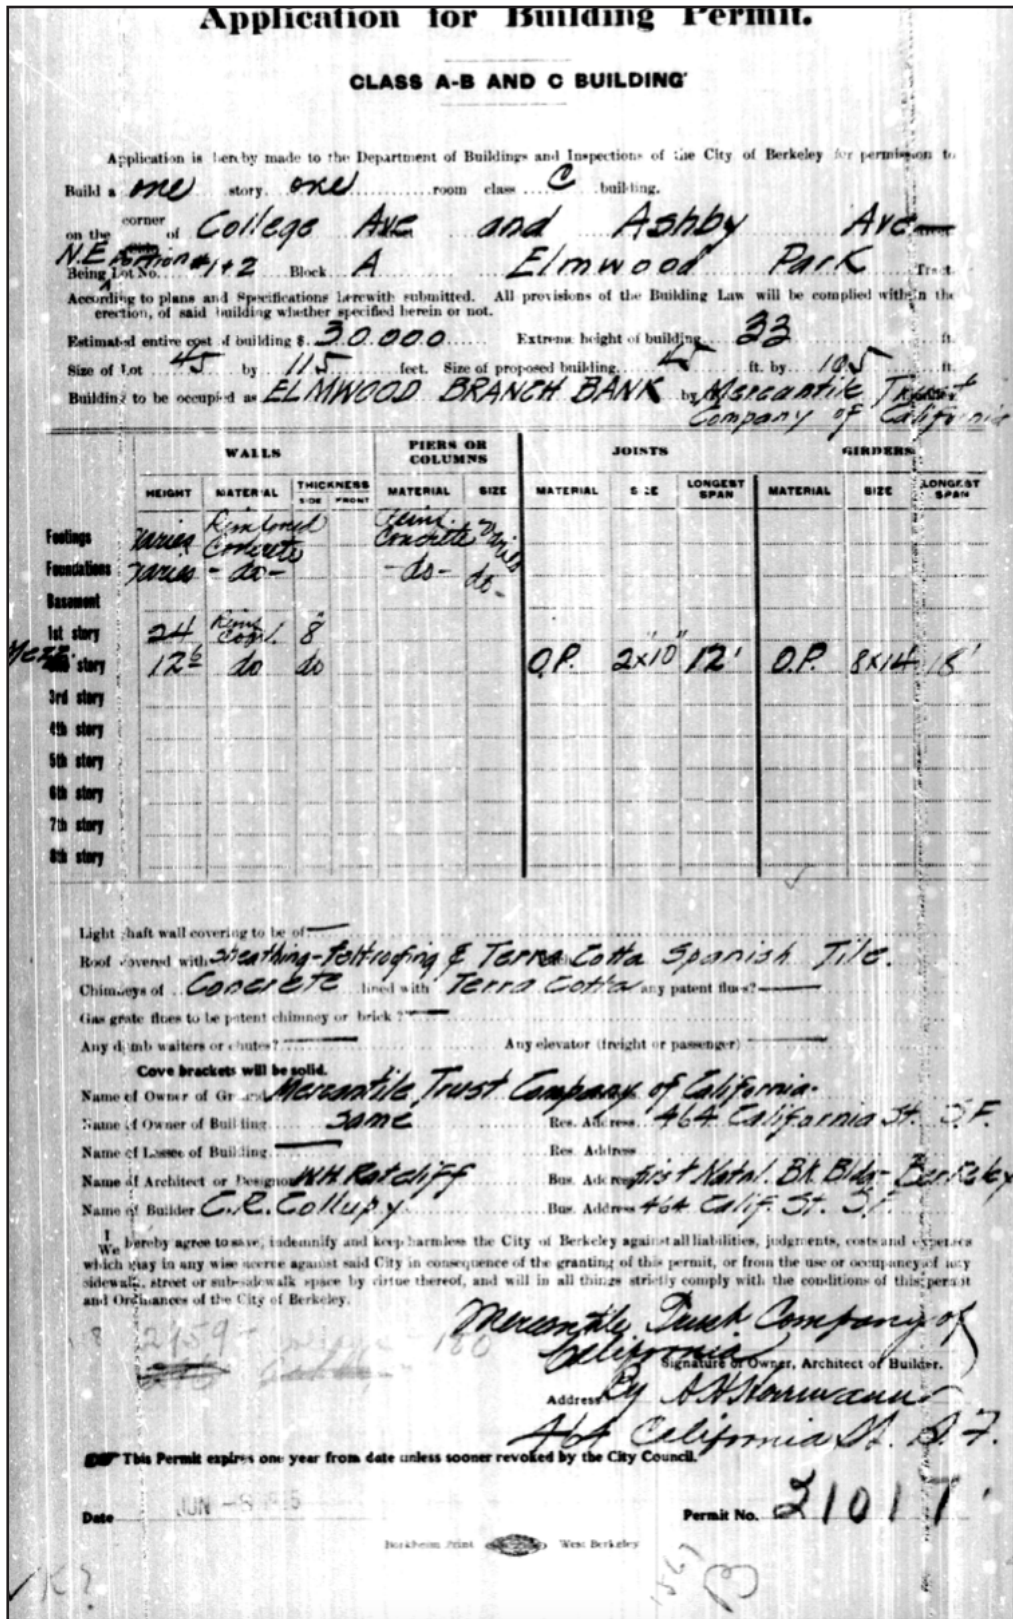 Application for Building Permit.
CLASS A-B AND C BUILDING
Application is hereby made to the Department of Buildings and Inspections of the City of Berkeley for permission to
Build a one story one room class C building.
on the corner of College Ave and Ashby Ave
N.E. portion
Being Lot No. 1+2 Block A Elmwood Park Tract.
According to plans and Specifications herewith submitted. All provisions of the Building Law will be complied with in the
erection, of said building whether specified herein or not.
Estimated entire cost of building $ 30.000 Extreme height of building 33 ft.
Size of Lot 45 by 115 feet. Size of proposed building 45 ft. by 105 ft.
Building to be occupied as ELMWOOD BRANCH BANK by Mercantile Trust
Company of California
WALLS PIERS OR COLUMNS JOISTS GIRDERS
HEIGHT MATERIAL THICKNESS SIDE FRONT MATERIAL SIZE MATERIAL SIZE LONGEST SPAN MATERIAL SIZE LONGEST SPAN
Footings Varies Reinforced Concrete Reinf. Concrete Varies
Foundations Varies - do - - do - do -
Basement
1st story 24 Reinf. Conc. 8"
Mezz. story 12 6 do do O.P. 2x10" 12' O.P. 8x14 18'
3rd story
4th story
5th story
6th story
7th story
8th story
Light shaft wall covering to be of
Roof covered with Sheathing-felt roofing & Terra Cotta Spanish Tile.
Chimneys of Concrete lined with Terra Cotta any patent flues?
Gas grate flues to be patent chimney or brick?
Any dumb waiters or chutes? Any elevator (freight or passenger)
Cove brackets will be solid.
Name of Owner of Ground Mercantile Trust Company of California.
Name of Owner of Building same Res. Address 464 California St. S.F.
Name of Lessee of Building Res. Address
Name of Architect or Designor W.H. Ratcliff Bus. Address First Natnl. Bk Bldg - Berkeley
Name of Builder C.R. Collupy Bus. Address 464 Calif. St. S.F.
I We hereby agree to save, indemnify and keep harmless the City of Berkeley against all liabilities, judgments, costs and expenses
which may in any wise accrue against said City in consequence of the granting of this permit, or from the use or occupancy of any
sidewalk, street or sub-sidewalk space by virtue thereof, and will in all things strictly comply with the conditions of this permit
and Ordinances of the City of Berkeley.
Mercantile Trust Company of
California
Signature of Owner, Architect of Builder.
Address By
464 California St. S.F.
This Permit expires one year from date unless sooner revoked by the City Council.
Date JUN Permit No. 21017
Print West Berkeley